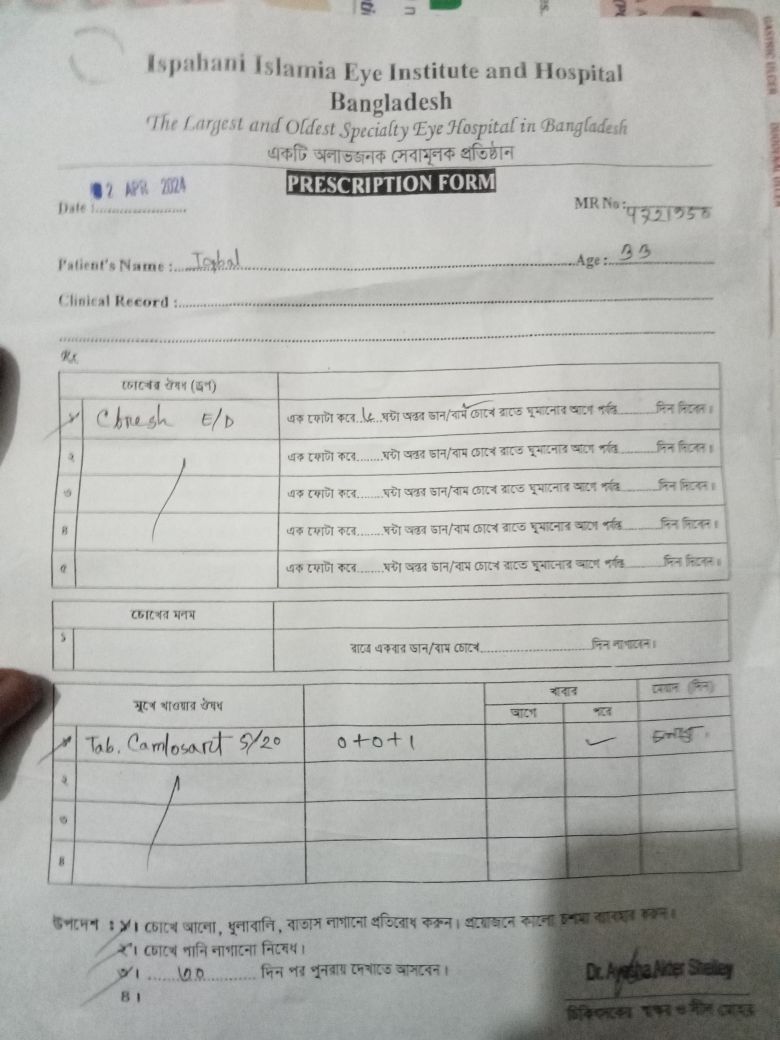 Ispahani Islamia Eye Institute and Hospital
Bangladesh
The Largest and Oldest Specialty Eye Hospital in Bangladesh
একটি অলাভজনক সেবামূলক প্রতিষ্ঠান
PRESCRIPTION FORM
2 APR 2024
Date :
MR No :
Patient's Name : Iqbal Age : 33
Clinical Record :
Rx
চোখের ঔষধ (ড্রপ)
১ E/D এক ফোটা করে ঘন্টা অন্তর ডান/বাম চোখে রাতে ঘুমানোর আগে পর্যন্ত দিন দিবেন।
২ এক ফোটা করে........ঘন্টা অন্তর ডান/বাম চোখে রাতে ঘুমানোর আগে পর্যন্ত........দিন দিবেন।
৩ এক ফোটা করে........ঘন্টা অন্তর ডান/বাম চোখে রাতে ঘুমানোর আগে পর্যন্ত........দিন দিবেন।
৪ এক ফোটা করে........ঘন্টা অন্তর ডান/বাম চোখে রাতে ঘুমানোর আগে পর্যন্ত........দিন দিবেন।
৫ এক ফোটা করে........ঘন্টা অন্তর ডান/বাম চোখে রাতে ঘুমানোর আগে পর্যন্ত........দিন দিবেন।
চোখের মলম
১ রাতে একবার ডান/বাম চোখে........দিন লাগাবেন।
মুখে খাওয়ার ঔষধ খাবার মেয়াদ (দিন)
আগে পরে
১ Tab. Camlosart 5/20 0+0+1 ✓
২
৩
৪
উপদেশ : ১। চোখে আলো, ধুলাবালি, বাতাস লাগানো প্রতিরোধ করুন। প্রয়োজনে কালো চশমা ব্যবহার করুন।
২। চোখে পানি লাগানো নিষেধ।
৩। দিন পর পুনরায় দেখাতে আসবেন।
৪।
Dr. Ayesha Akter